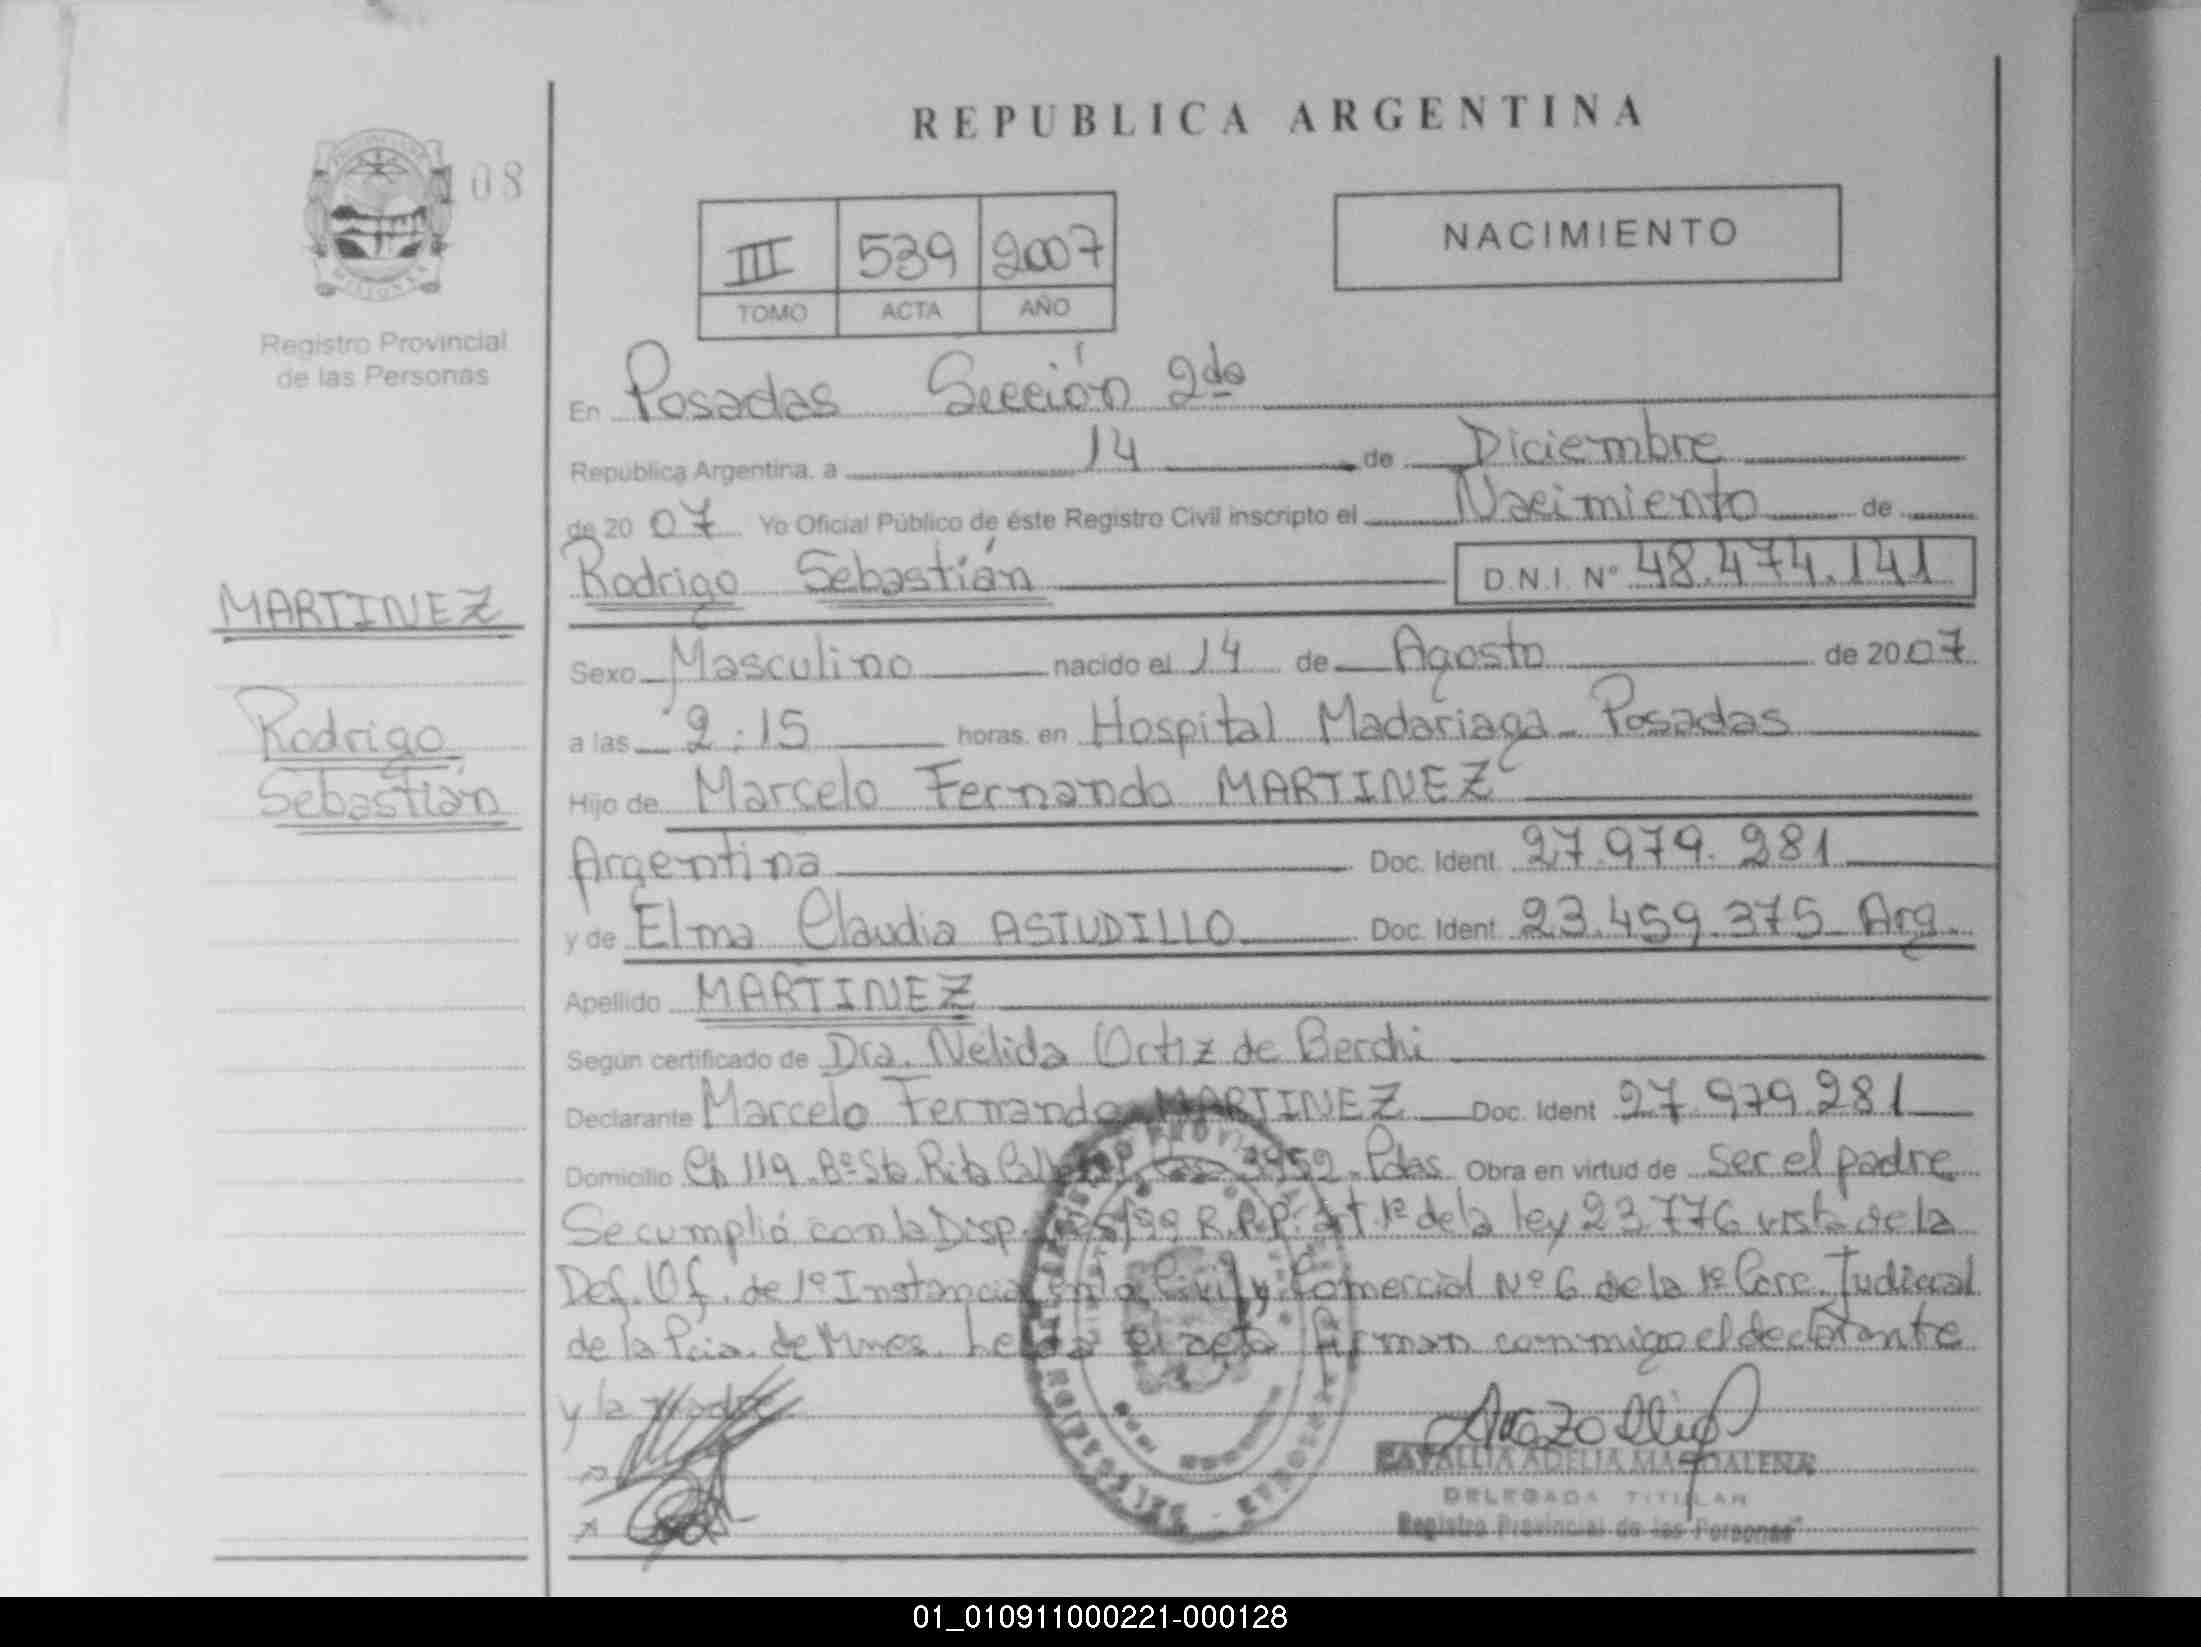 REPUBLICA ARGENTINA
108
III 539 2007
TOMO ACTA AÑO
NACIMIENTO
Registro Provincial
de las Personas
En Posadas Sección 2da
Republica Argentina, a 14 de Diciembre
de 2007 Yo Oficial Público de éste Registro Civil inscripto el Nacimiento de
Rodrigo Sebastián D.N.I. Nº 48.474.141
MARTINEZ
Rodrigo
Sebastián
Sexo Masculino nacido el 14 de Agosto de 2007
a las 2:15 horas. en Hospital Madariaga - Posadas
Hijo de Marcelo Fernando MARTINEZ
Argentina Doc. Ident. 27.979.281
y de Elma Claudia ASTUDILLO Doc. Ident. 23.459.375 Arg.
Apellido MARTINEZ
Según certificado de Dra. Nelida Ortiz de Berchi
Declarante Marcelo Fernando MARTINEZ Doc. Ident 27.979.281
Domicilio Ch 119 Bº Sta. Rita 3952 - Pdas Obra en virtud de ser el padre
Se cumplió con la Disp. /99 R.P.P. art. 1º de la ley 23.776 vista de la
Def. Of. de 1º Instancia en lo Civil y Comercial Nº 6 de la 1º Circ. Judicial
de la Pcia. de Mnes. Leída el acta firman conmigo el declarante
y la madre
CAVALLIA ADELIA MAGDALENA
DELEGADA TITULAR
Registro Provincial de las Personas
01_010911000221-000128